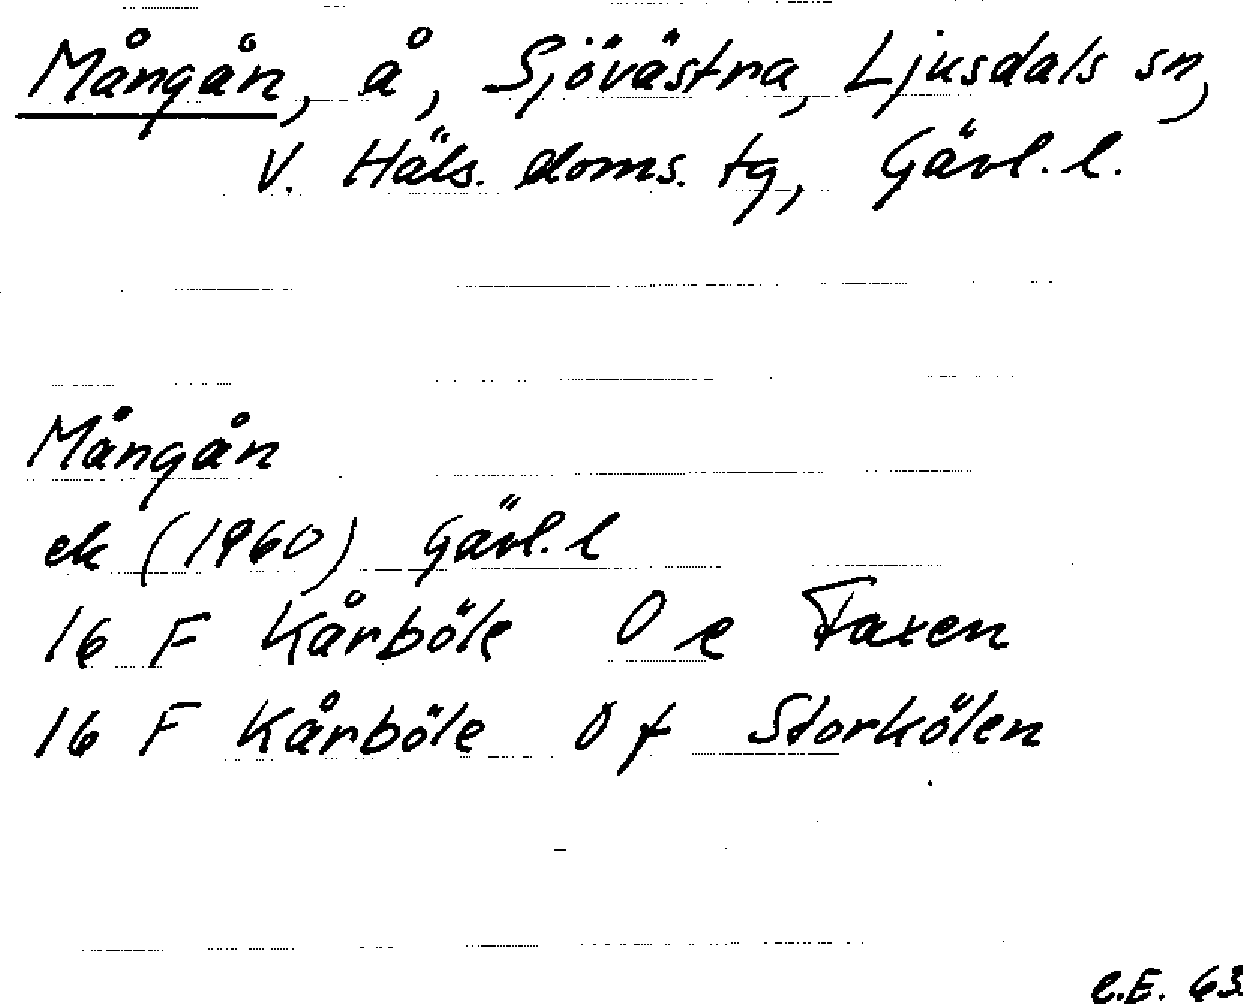 Mångån, å, Sjövästra, Ljusdals sn,
V. Häls. doms. tg, Gävl. l.
Mångån
ek (1960) Gävl. l
16 F Kårböle O e Faxen
16 F Kårböle O f Storkölen
C.E. 63.